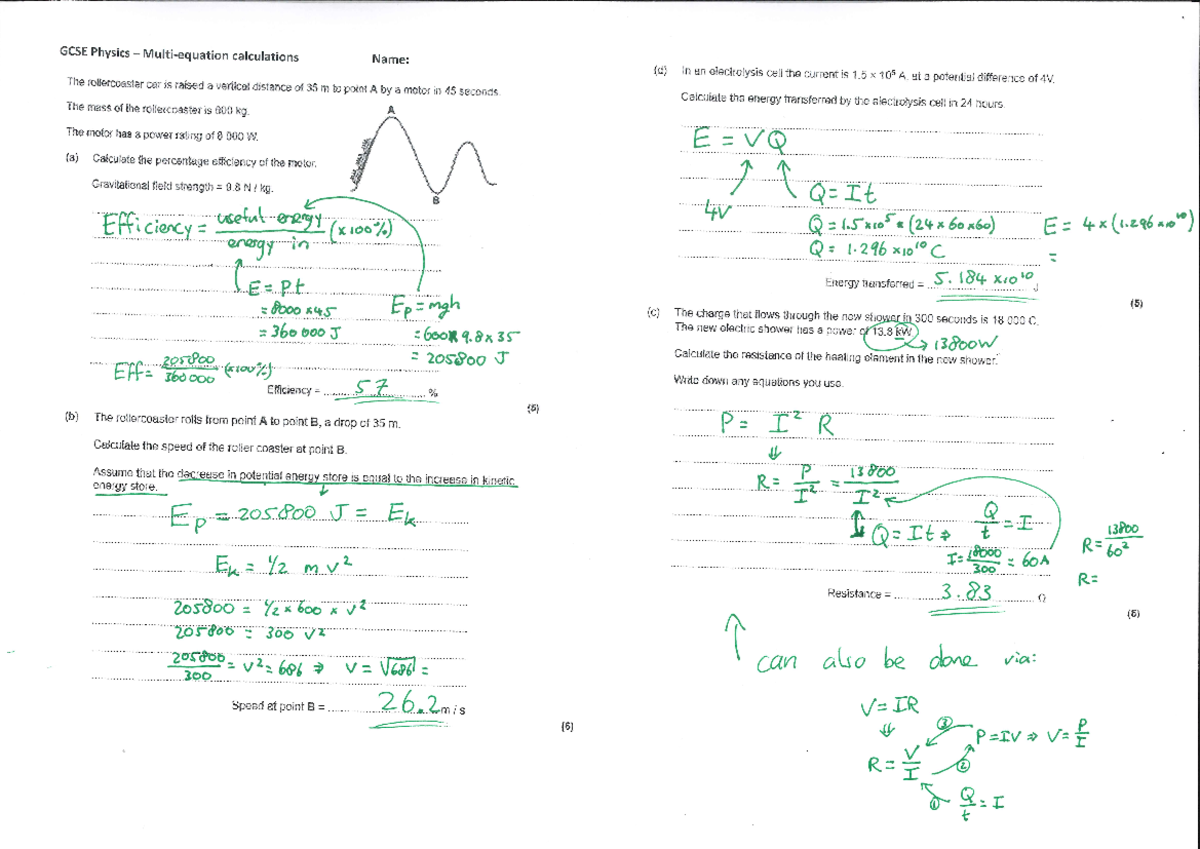 GCSE Physics – Multi-equation calculations Name:
The rollercoaster car is raised a vertical distance of 35 m to point A by a motor in 45 seconds.
The mass of the rollercoaster is 600 kg.
The motor has a power rating of 8 000 W.
(a) Calculate the percentage efficiency of the motor.
Gravitational field strength = 9.8 N / kg.
A
B
Efficiency = useful energy / energy in (x100%)
E = Pt
= 8000 x 45
= 360 000 J
Ep = mgh
= 600 x 9.8 x 35
= 205800 J
Eff = 205800 / 360000 (x100%)
Efficiency = 57 %
(5)
(b) The rollercoaster rolls from point A to point B, a drop of 35 m.
Calculate the speed of the roller coaster at point B.
Assume that the decrease in potential energy store is equal to the increase in kinetic
energy store.
Ep = 205800 J = Ek
Ek = 1/2 m v²
205800 = 1/2 x 600 x v²
205800 = 300 v²
205800 / 300 = v² = 686 ⇒ v = √686 =
Speed at point B = 26.2 m / s
(6)
(d) In an electrolysis cell the current is 1.5 × 10⁵ A, at a potential difference of 4V.
Calculate the energy transferred by the electrolysis cell in 24 hours.
E = VQ
4V
Q = It
Q = 1.5 x10⁵ x (24 x 60 x 60)
Q = 1.296 x10¹⁰ C
E = 4 x (1.296 x10¹⁰)
=
Energy transferred = 5.184 x10¹⁰ J
(5)
(c) The charge that flows through the new shower in 300 seconds is 18 000 C.
The new electric shower has a power of 13.8 kW
→ 13800W
Calculate the resistance of the heating element in the new shower.
Write down any equations you use.
P = I² R
⇓
R = P / I² = 13800 / I²
Q = It ⇒ Q / t = I
I = 18000 / 300 = 60A
R = 13800 / 60²
R =
Resistance = 3.83 Ω
(6)
can also be done via:
V = IR
⇓
R = V / I
③ P = IV ⇒ V = P / I
②
① Q / t = I